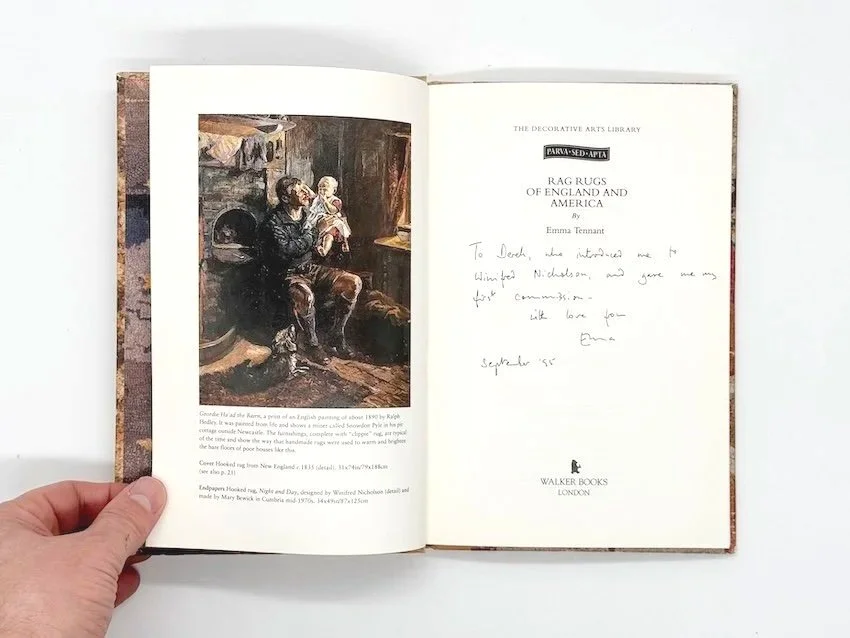 Geordie Ha'ad the Bairn, a print of an English painting of about 1890 by Ralph
Hedley. It was painted from life and shows a miner called Snowdon Pyle in his pit
cottage outside Newcastle. The furnishings, complete with "clippie" rug, are typical
of the time and show the way that handmade rugs were used to warm and brighten
the bare floors of poor houses like this.
Cover Hooked rug from New England c.1835 (detail). 31x74in/79x188cm
(see also p. 21)
Endpapers Hooked rug, Night and Day, designed by Winifred Nicholson (detail) and
made by Mary Bewick in Cumbria mid-1970s. 34x49in/87x125cm
THE DECORATIVE ARTS LIBRARY
PARVA·SED·APTA
RAG RUGS
OF ENGLAND AND
AMERICA
By
Emma Tennant
To Derek, who introduced me to
Winifred Nicholson, and gave me my
first commission -
with love from
Emma
September '95
WALKER BOOKS
LONDON